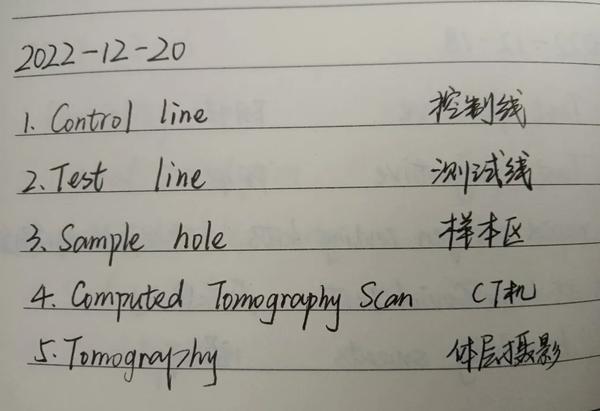 2022-12-20
1. Control line 控制线
2. Test line 测试线
3. Sample hole 样本区
4. Computed Tomography Scan CT机
5. Tomography 体层摄影